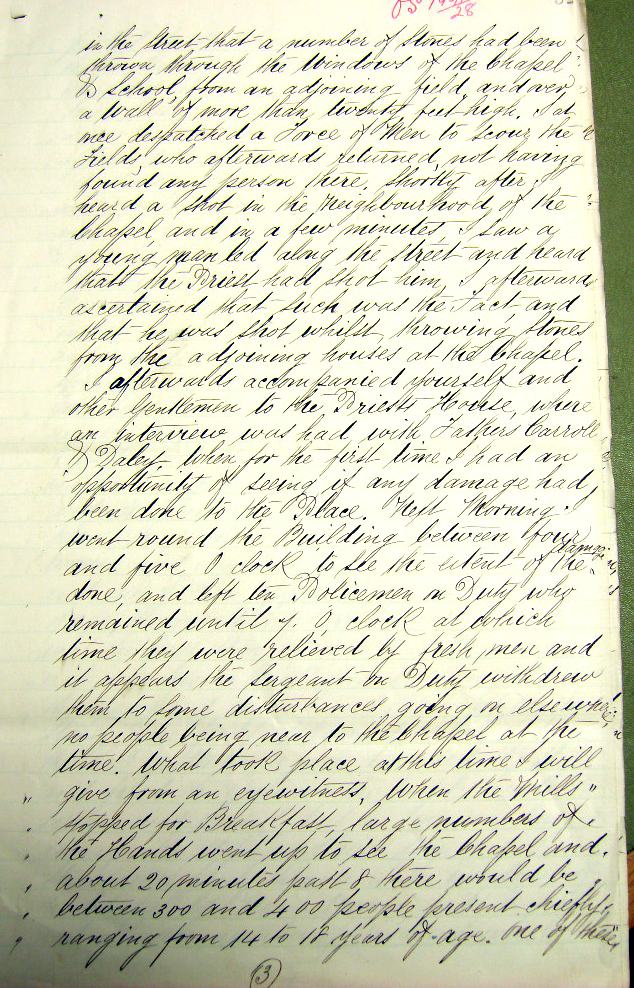 28
in the Street that a number of Stones had been
thrown through the Windows of the Chapel
& School, from an adjoining field, and over
a Wall of more than twenty feet high. I at
once despatched a Force of Men to scour the
Fields, who afterwards returned, not having
found any person there, Shortly after I
heard a Shot in the Neighbourhood of the
Chapel, and in a few minutes I saw a
young man led along the Street and heard
that the Priest had Shot him, I afterwards
ascertained that such was the Fact, and
that he was Shot whilst throwing Stones
from the adjoining houses at the Chapel.
I afterwards accompanied yourself and
other Gentlemen to the Priests House, where
an interview was had with Fathers Carroll
& Daley, when for the first time I had an
opportunity of seeing if any damage had
been done to the Place. Next Morning I
went round the Building between four
and five O clock to see the extent of the damage
done, and left ten Policemen on Duty who
remained until 7. O, clock at which
time they were relieved by fresh men and
it appears the Sergeant on Duty withdrew
them to some disturbances going on elsewhere
no people being near to the Chapel at the
time. What took place at this time I will
give from an eyewitness, "When the Mills
stopped for Breakfast, large numbers of
the Hands went up to see the Chapel and
about 20 minutes past 8 there would be
between 300 and 400 people present chiefly
ranging from 14 to 18 Years of age. One of these
3